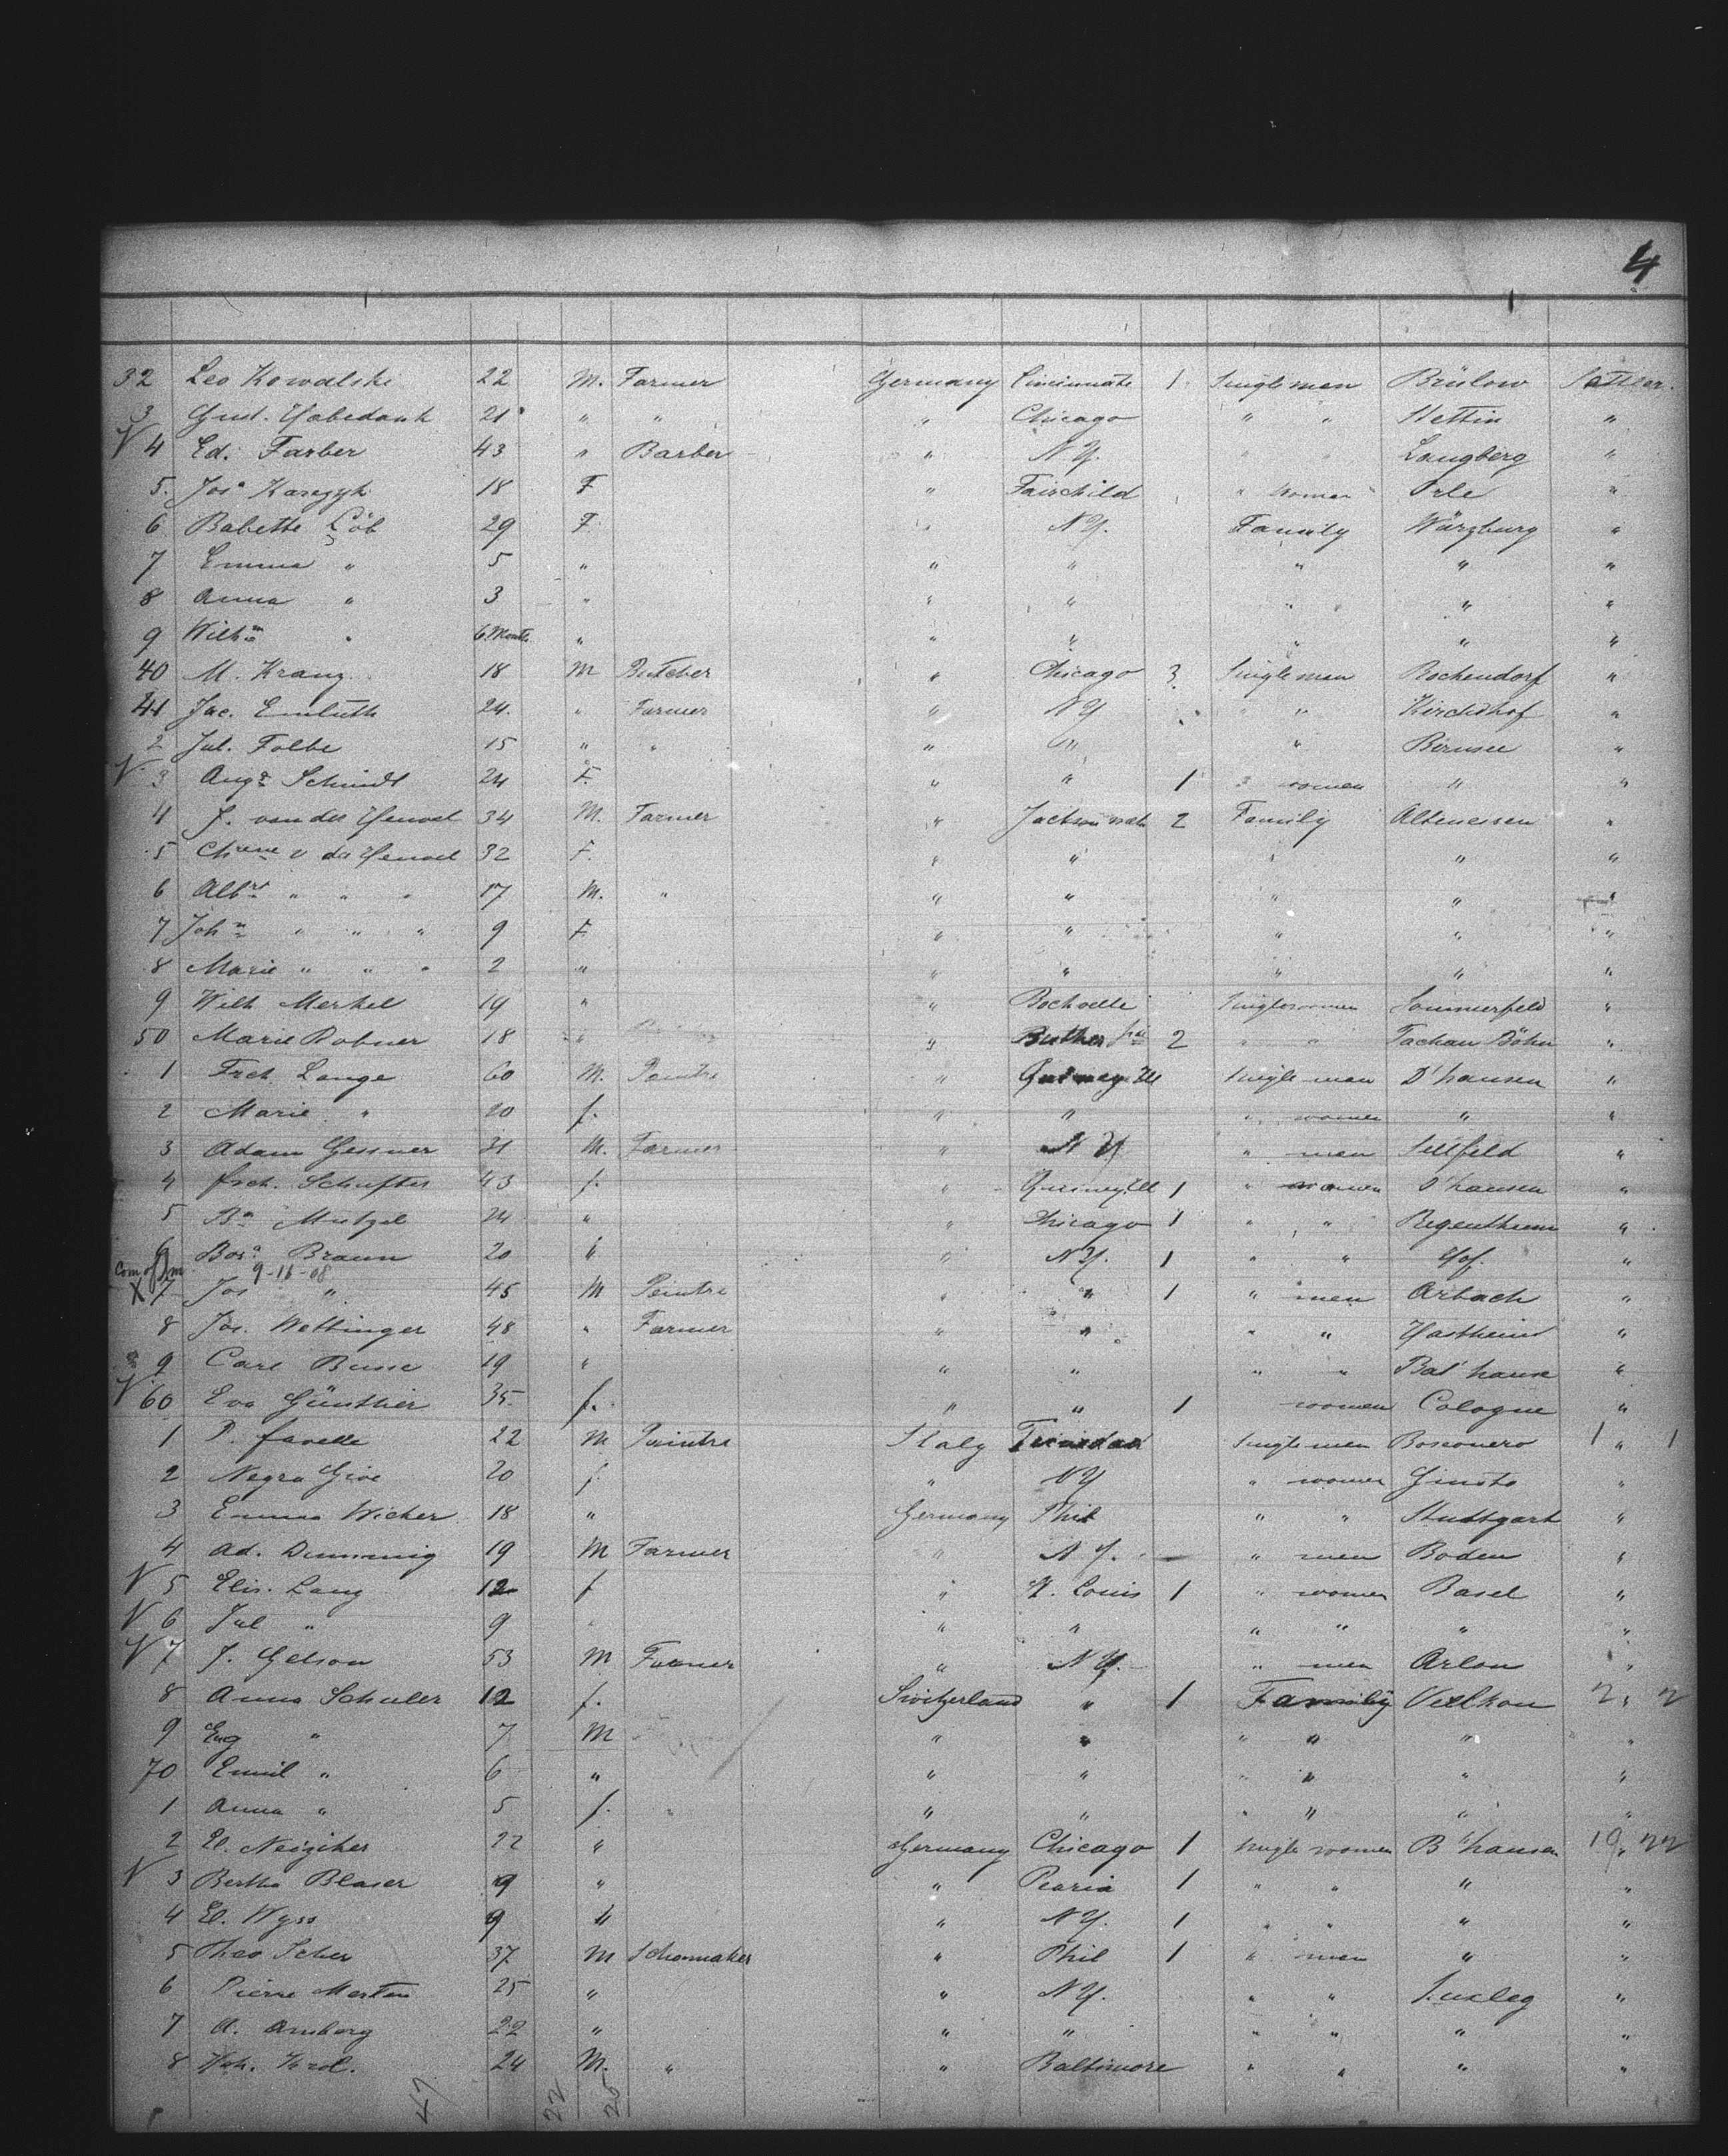 4
32 Leo Kowalski 22 M. Farmer Germany Cincinnate 1 Single man Brülow Settler.
3 Gust. Habedank 21 " " " Chicago " " Stettin "
V 4 Ed. Farber 43 " Barber " N.Y. " " Langberg "
5. Jos. 18 F " Fairchild " woman Orle "
6 Babette Löb 29 F. " N.Y. Family Würzburg "
7 Emma " 5 " " " " " "
8 Anna " 3 " " " " " "
9 Wilhm " 6 Month " " " " " "
40 M. Kranz 18 M Butcher " Chicago 3 Single man Bochendorf "
41 Jac. Emluth 24. " Farmer " N.Y " " Kirchdhof "
2 Jul. Folbe 15 " " " " " Birnsee "
V 3 Augs Schmidt 24 F. " " 1 " women " "
4 J. van der Heuvel 34 M. Farmer " Jackson 2 Family Altenessen "
5 v der Heuvel 32 F. " " " " "
6 Albrt " " " 17 M. " " " " " "
7 John " " " 9 F " " " " "
8 Marie " " " 2 " " " " " "
9 Wilh Merkel 19 " " Rochelle Single women Sommerfeld "
50 Marie Robner 18 " " 2 " " Tachau Böhm "
1 Frch Lange 60 M. Peintre " Quincy Ill Single man D'hausen "
2 Marie " 20 f. " " " women " "
3 Adam Gessner 31 M. Farmer " N Y " men Sellfeld "
4 frch. Schufter 43 f. " Quincy Ill 1 " women D'hausen "
5 Ba Mutzel 24 " " Chicago 1 " " Regentheim "
6 Bosa Braun 20 " " N.Y. 1 " " Hof. "
Com of Im 9-16-08
X 7 Jos " 45 M Peintre " " 1 " men Arbach "
8 Jos. Wettinger 48 " Farmer " " " " Hastheim "
9 Carl Busse 19 " " " " " Bal'hause "
V 60 Eva Günthier 35 f. " " 1 women Cologne "
1 P. favelle 22 M Peintre Italy Trinidad Single men Bosconero 1 " 1
2 Negra Giov 20 f. " N Y " women Giusto "
3 Emma Wicker 18 " Germany Phil " " Stuttgart "
4 Ad. Dumming 19 M Farmer " N Y. " men Boden "
V 5 Elis. Lang 12 f " St. Louis 1 " women Basel "
V 6 Jul " 9 " " " " " " "
V 7 J. Gelson 53 M Farmer " N Y. " men Arlon "
8 Anna Schuler 12 f. Switzerland " 1 Family Velthon 2 " 2
9 Eug " 7 M " " " " " "
70 Emil " 6 " " " " " " "
1 Anna " 5 f. " " " " " " "
2 El. Neiziker 22 " Germany Chicago 1 Single women B"hausen 19 " 22
V 3 Bertha Blaser 9 " " Pearia 1 " " " "
4 El. Wyss 9 " " N Y. 1 " " " "
5 Theo Scher 37 M Schomaker " Phil 1 " men " "
6 Pierre Merten 25 " " N Y. " " Luxleg "
7 A. Amberg 22 " " " " " " "
8 Krol. 24 M. " " Baltimore " " " "
47 22 25